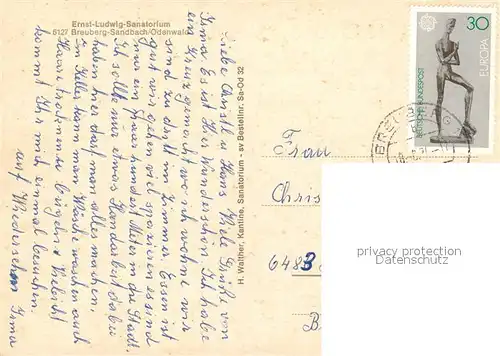 Ernst-Ludwig-Sanatorium
6127 Breuberg-Sandbach/Odenwald
Liebe Christl u Hans Viele Grüße von
Irma. Es ist Hier Wunderschön Ich habe
ein Kreuz gemacht wo ich wohne wir
sind zu dritt im Zimmer. Essen ist
gut vor allem viel spazieren es sind
nur ein paar hundert Meter in die Stadt.
Ich sollte nur etwas Handarbeit dabei
haben hier darf man alles machen,
im Keller kann man Wäsche waschen auch
Haare trocknen u bügeln. Vieleicht
kommt Ihr mich einmal besuchen.
auf Wiedersehn Irma
H. Walther, Kantine, Sanatorium - sv Bestellnr. Sa-Od 32
30
EUROPA
DEUTSCHE BUNDESPOST
BREU
Frau
Chris
6483
B
privacy protection
Datenschutz